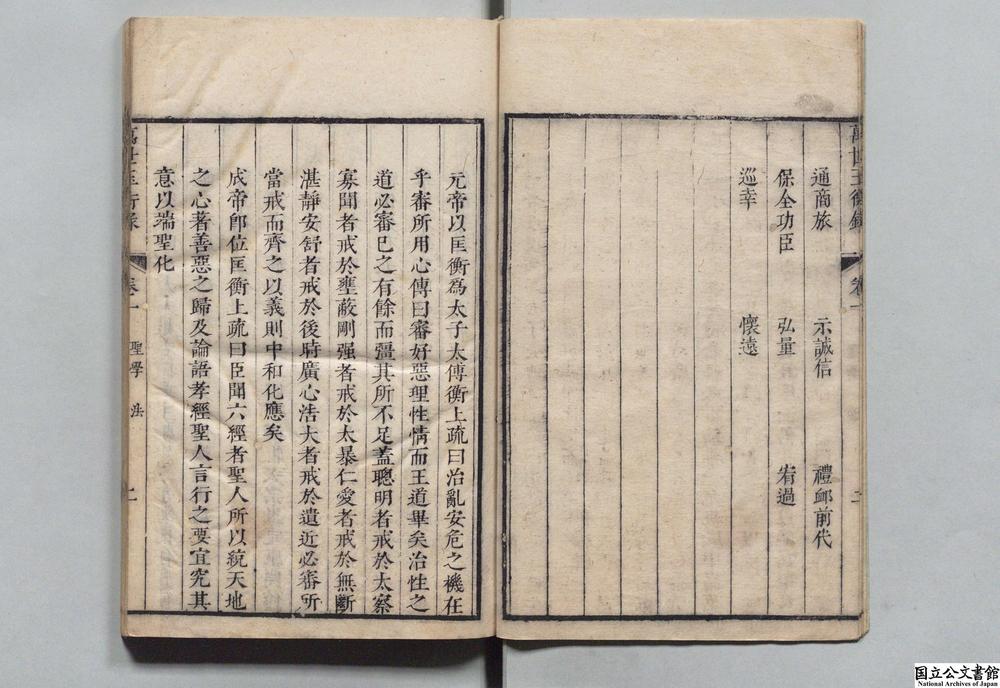 萬世玉衡錄 卷一 二
通商旅 示誠信 禮卹前代
保全功臣 弘量 宥過
巡幸 懷遠
元帝以匡衡為太子太傅衡上疏曰治亂安危之機在
乎審所用心傳曰審好惡理性情而王道畢矣治性之
道必審已之有餘而彊其所不足蓋聰明者戒於太察
寡聞者戒於壅蔽剛强者戒於太暴仁愛者戒於無斷
湛靜安舒者戒於後時廣心浩大者戒於遺近必審所
當戒而齊之以義則中和化應矣
成帝卽位匡衡上疏曰臣聞六經者聖人所以統天地
之心著善惡之歸及論語孝經聖人言行之要宜究其
意以端聖化
萬世玉衡錄 卷一 聖學 法 二
国立公文書館
National Archives of Japan